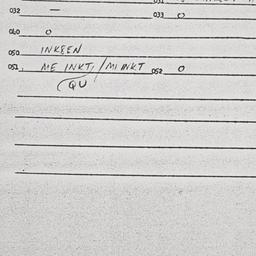 032 — 033 O
040 O
050 INKSEN
051 ME INKT, / MI INKT 052 O
QU